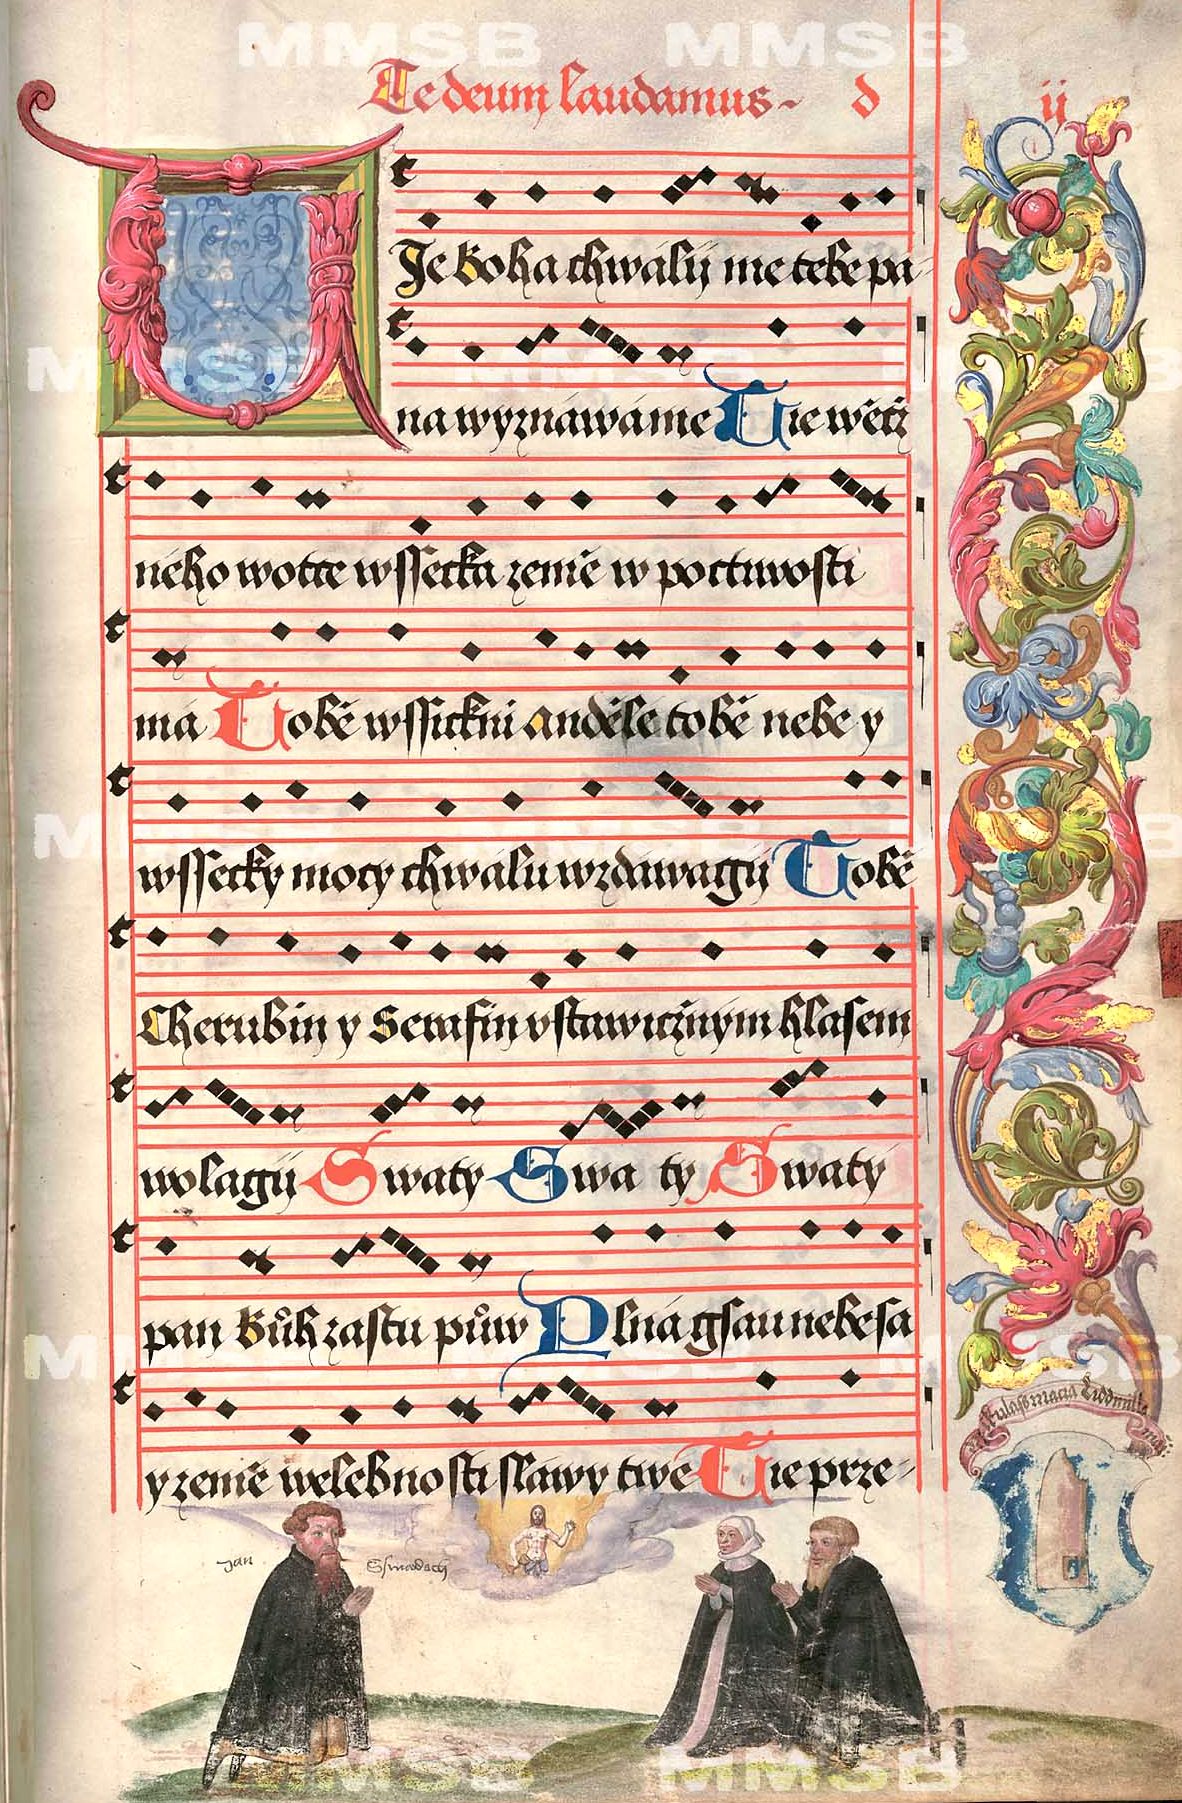 Te deum laudamus d ii
TJe Boha chwálij me tebe pa-
na wyznáwáme Tie wěčz
ného wotce wssecka zemie w poctiwosti
má Tobě wssickni Andiele tobě nebe y
wssecky mocy chwálu wzdáwagij Tobě
Cherubin y Serafin vstawičzným hlasem
wolagij Swatý Swa tý Swatý
pan Bůh zástu půw Plná gsau nebesa
y zemie welebnosti sláwy twé Tie prze-
Jan Ssmadach